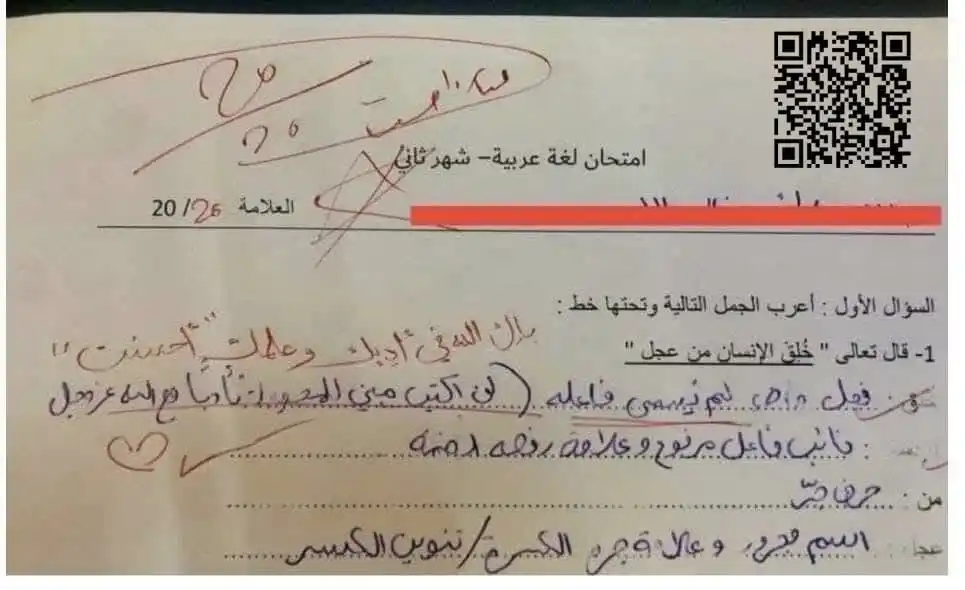 ٢٠
٢٠
ممتاز أحسنت
امتحان لغة عربية– شهر ثاني
العلامة 20/20
السؤال الأول : أعرب الجمل التالية وتحتها خط :
1- قال تعالى " خُلِقَ الإنسان من عجل "
بارك الله في أدبك وعلمك "أحسنت"
خلق: فعل ماض لم يُسمى فاعله (لن اكتب مبني للمجهول تأدبا مع الله عز وجل
: نائب فاعل مرفوع وعلامة رفعه الضمة
من : حرف جرّ
عجل: اسم مجرور وعلامة جره الكسرة/تنوين الكسر